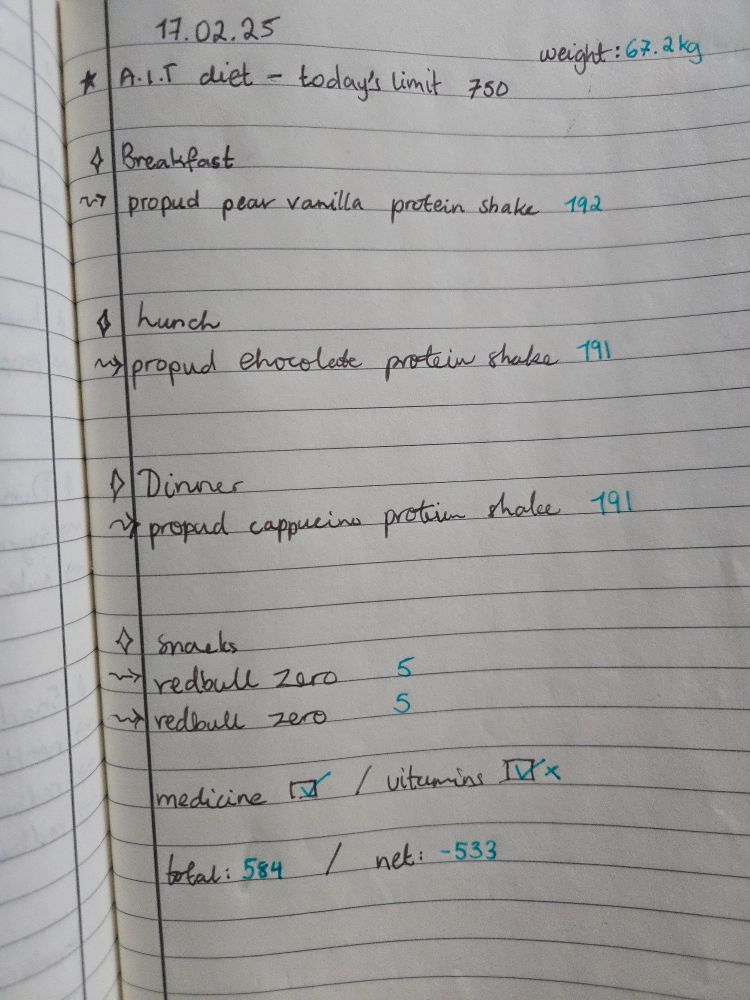 17.02.25
weight: 67.2kg
A.I.T diet - today's limit 750
Breakfast
propud pear vanilla protein shake 192
Lunch
propud chocolate protein shake 191
Dinner
propud cappucino protein shake 191
Snacks
redbull zero 5
redbull zero 5
medicine ☑ / vitamins ☑ x
total: 584 / net: -533